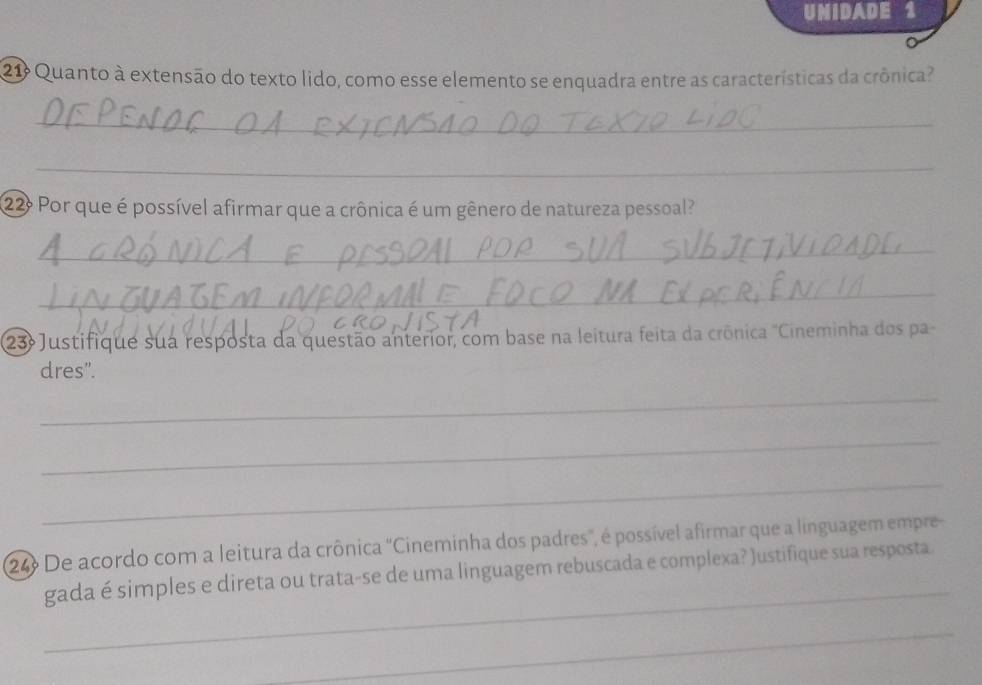 UNIDADE 1
21 Quanto à extensão do texto lido, como esse elemento se enquadra entre as características da crônica?
DEPENDE DA EXTENSÃO DO TEXTO LIDO
22 Por que é possível afirmar que a crônica é um gênero de natureza pessoal?
A CRÔNICA E PESSOAL POR SUA SUBJETIVIDADE,
LINGUAGEM INFORMAL E FOCO NA EXPERIÊNCIA
INDIVIDUAL DO CRONISTA
23 Justifique sua resposta da questão anterior, com base na leitura feita da crônica "Cineminha dos pa-
dres".
24 De acordo com a leitura da crônica "Cineminha dos padres", é possível afirmar que a linguagem empre-
gada é simples e direta ou trata-se de uma linguagem rebuscada e complexa? Justifique sua resposta.